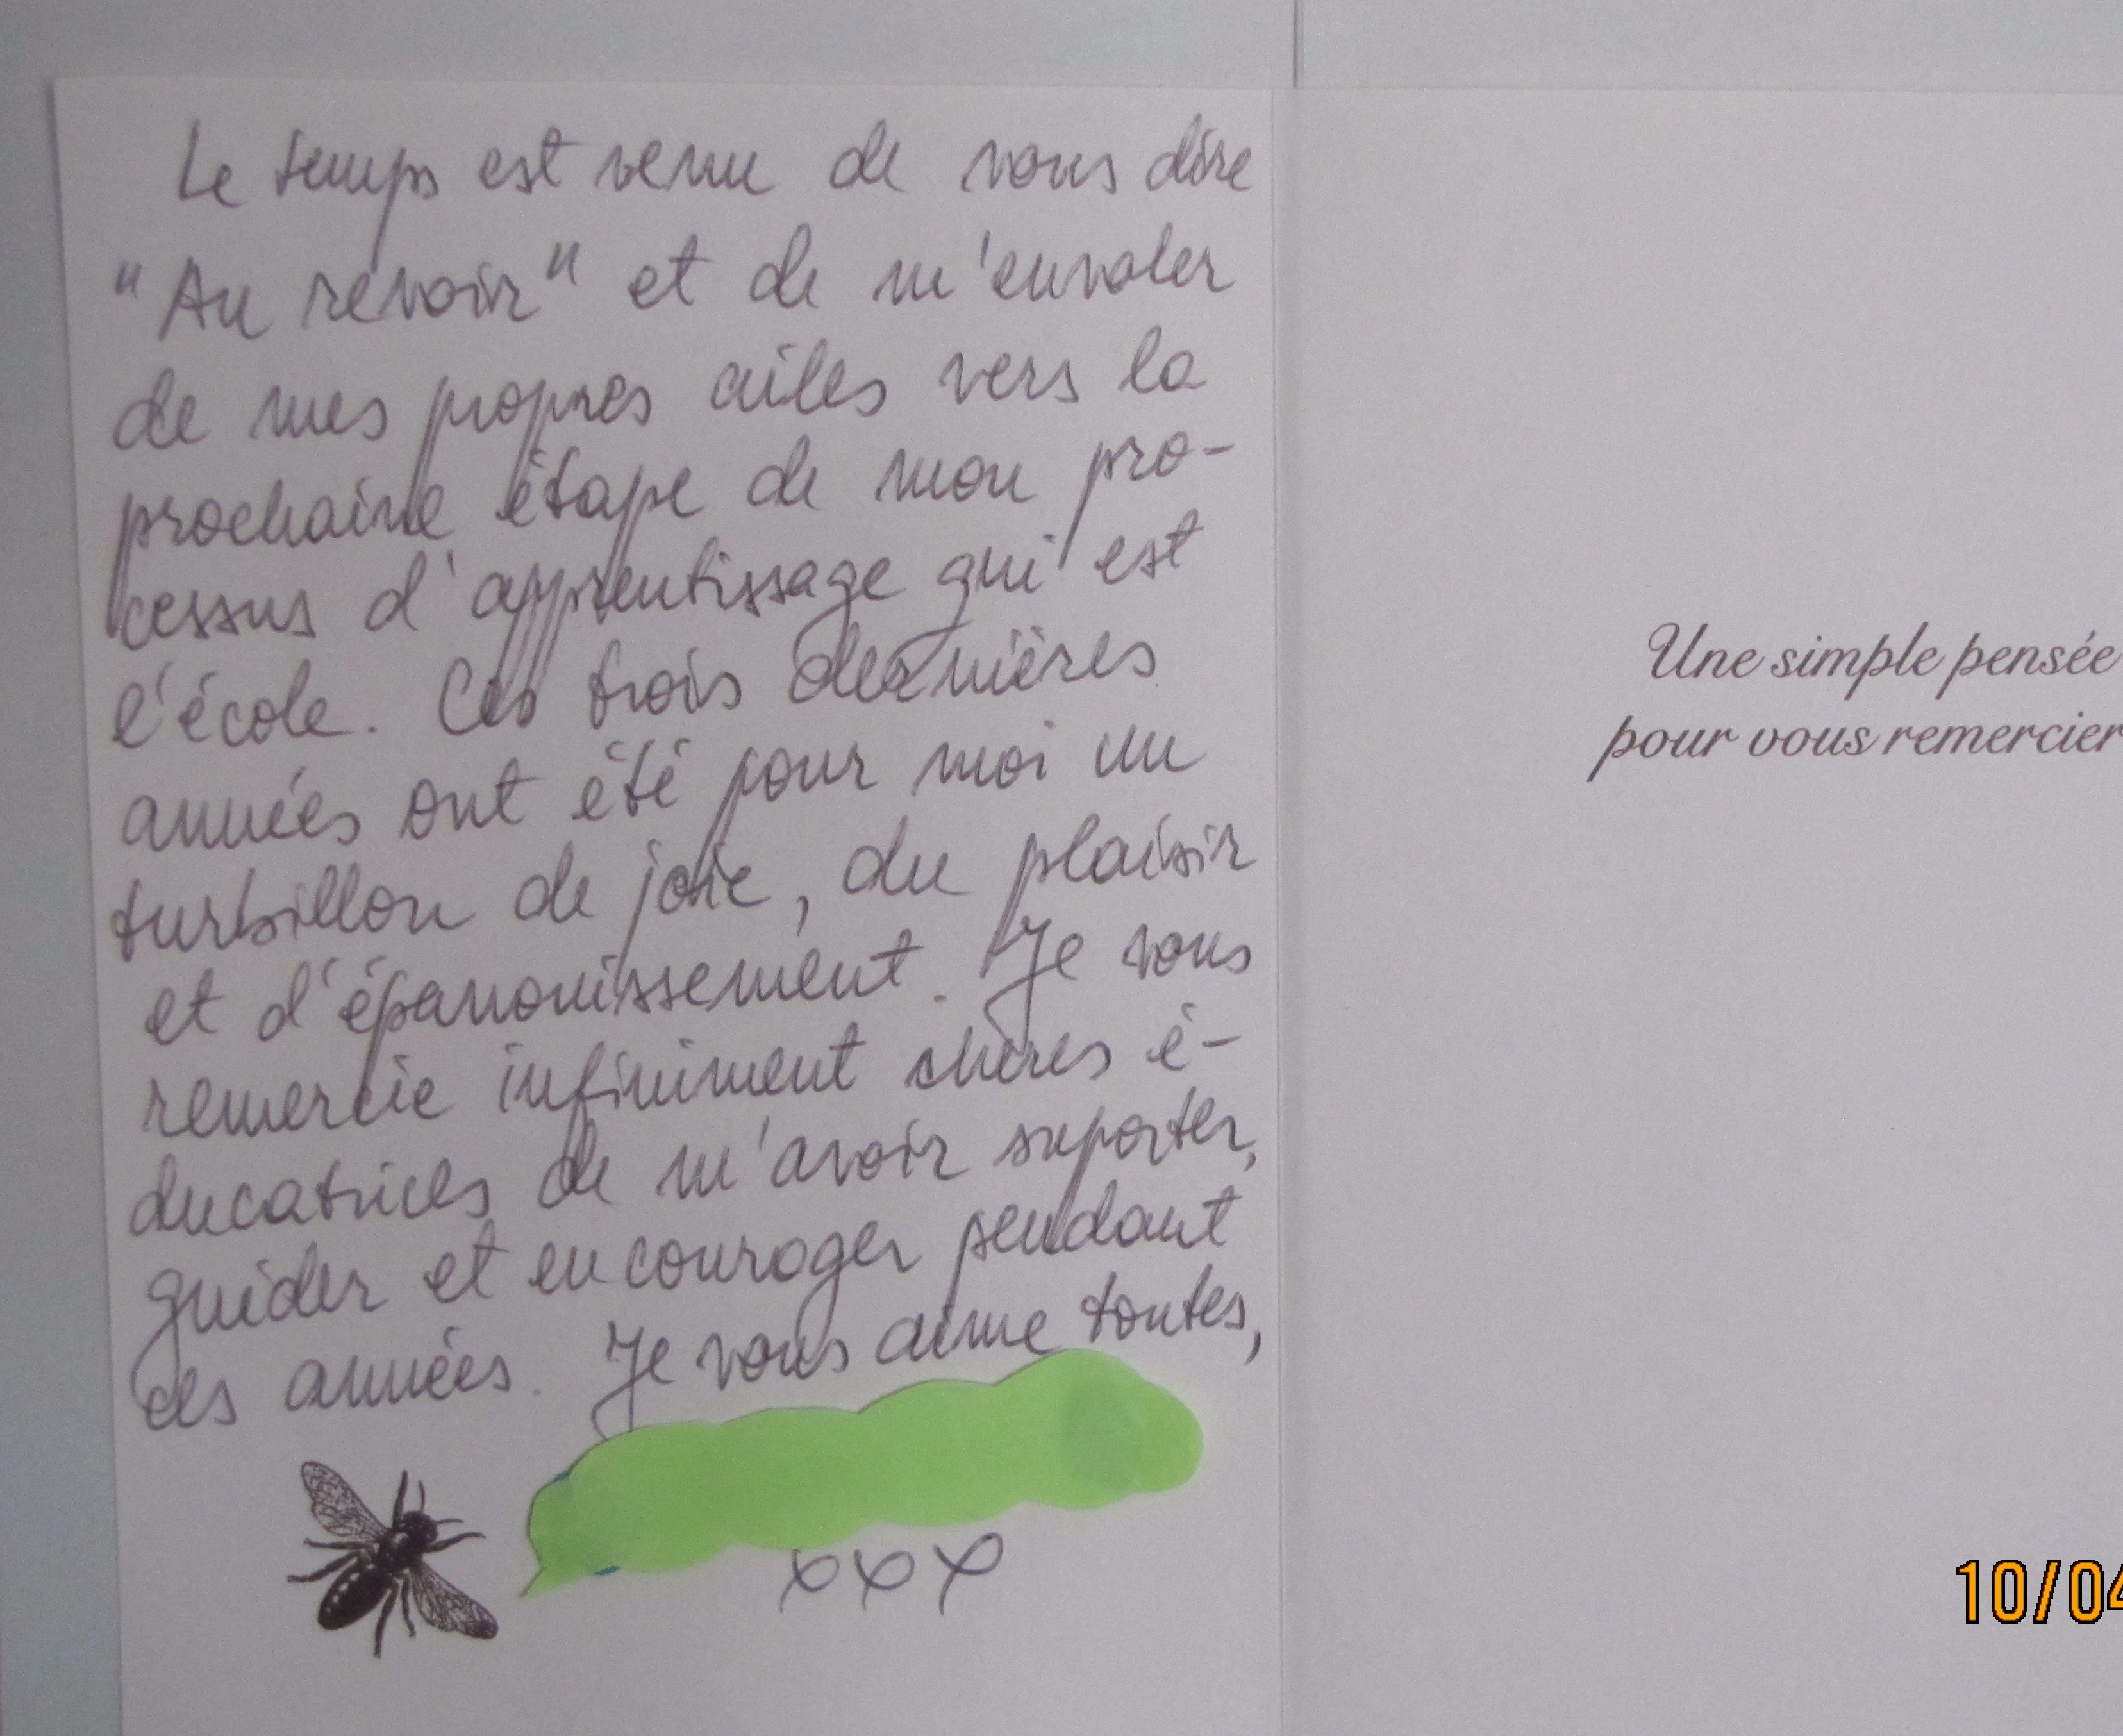 Le temps est venu de vous dire
"Au revoir" et de m'envoler
de mes propres ailes vers la
prochaine étape de mon pro-
cessus d'apprentissage qui est
l'école. Ces trois dernières
années ont été pour moi un
turbillon de joie, du plaisir
et d'épanouissement. Je vous
remercie infiniment chères é-
ducatrices de m'avoir suporter,
guider et encourager pendant
ces années. Je vous aime toutes,
xxx
Une simple pensée
pour vous remercier
10/04